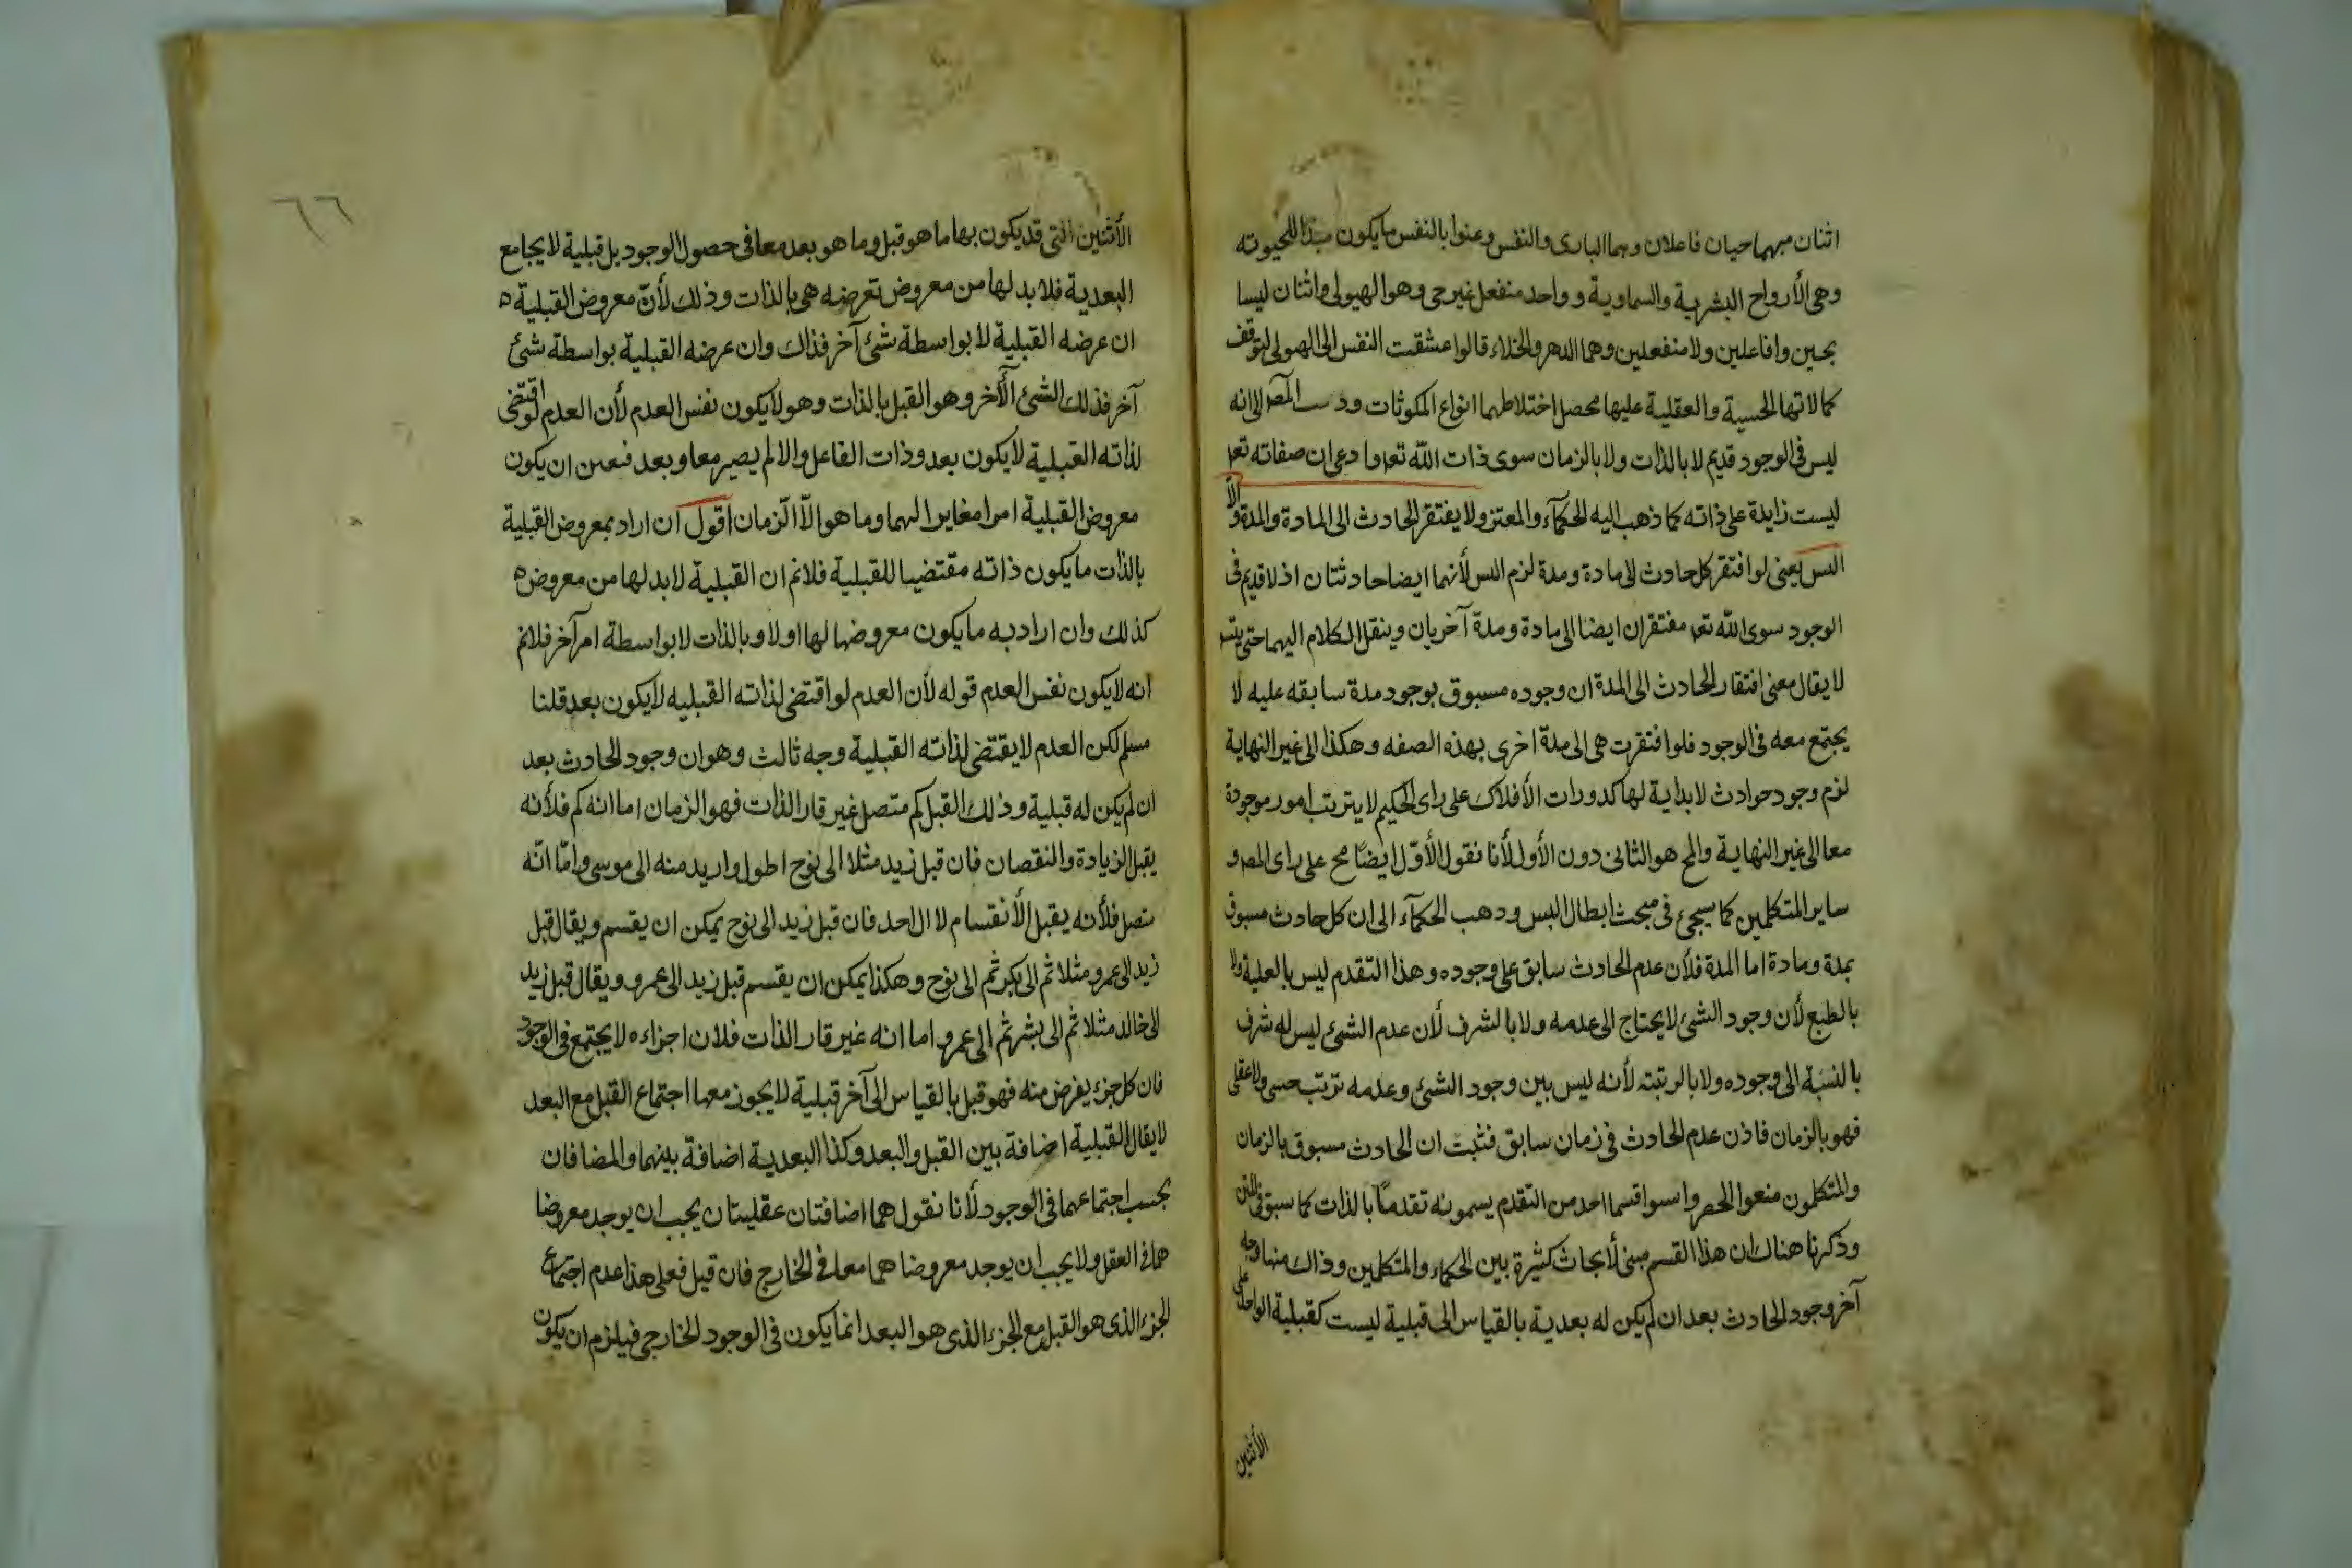 اثنان منهما حيان فاعلان وهما البارى والنفس وعنوا بالنفس ما يكون مبدأ للحيوته
وهى الأرواح البشرية والسماوية و واحد منفعل غير حى وهو الهيولى واثنان ليسا
بحيين وفاعلين ولا منفعلين وهما الدهر والخلاء قالوا عشقت النفس الى الهيولى لتوقف
كمالاتها الحسية والعقلية عليها فحصل اختلاطهما انواع المكونات وذهب المص الى انه
ليس فى الوجود قديم لا بالذات ولا بالزمان سوى ذات الله تعا وادعى ان صفاته تعا
ليست زايدة على ذاته كما ذهب اليه الحكمآء والمعتز ولا يفتقر الحادث الى المادة والمدة والا
التس يعنى لو افتقر كل حادث الى مادة ومدة لزم التس لأنهما ايضا حادثتان اذ لا قديم فى
الوجود سوى الله تعا مفتقران ايضا الى مادة ومدة آخريان وينقل الكلام اليهما حتى يتس
لا يقال معنى افتقار الحادث الى المدة ان وجوده مسبوق بوجود مدة سابقه عليه لا
يجتمع معه فى الوجود فلو افتقرت هى الى مدة اخرى بهذه الصفه وهكذا الى غير النهاية
لزم وجود حوادث لا بداية لها كدورات الأفلاك على راى الحكيم لا يترتب امور موجودة
معا الى غير النهاية والمح هو الثانى دون الأول لأنا نقول الأوّل ايضًا مح على راى المص و
ساير المتكلمين كما سيجئ فى مبحث ابطال التس وذهب الحكمآء الى ان كل حادث مسبوق
بمدة ومادة اما المدة فلأن عدم الحادث سابق على وجوده وهذا التقدم ليس بالعلية ولا
بالطبع لأن وجود الشئ لا يحتاج الى عدمه ولا بالشرف لأن عدم الشئ ليس له شرف
بالنسبة الى وجوده ولا بالرتبته لأنه ليس بين وجود الشئ وعدمه ترتب حسى ولا عقلى
فهو بالزمان فاذن عدم الحادث فى زمان سابق فثبت ان الحادث مسبوق بالزمان
والمتكلمون منعوا الحصر واسوا قسما احد من التقدم يسمونه تقدمًا بالذات كما سبق فى المتن
وذكرنا هناك ان هذا القسم مبنى لأبحاث كثيرة بين الحكماء والمتكلمين وذاك منها وجه
آخر وجود الحادث بعد ان لم يكن له بعدية بالقياس الى قبلية ليست كقبلية الواحد على
الأثنين
٦٦
الأثنين التى قد يكون بها ما هو قبل وما هو بعد معا فى حصول الوجود بل قبلية لا يجامع
البعدية فلا بد لها من معروض تعرضه هى بالذات وذلك لأنّ معروض القبلية ه
ان عرضه القبلية لا بواسطة شئ آخر فذاك وان عرضه القبلية بواسطة شئ
آخر فذلك الشئ الآخر وهو القبل بالذات وهو لا يكون نفس العدم لأن العدم لو اقتضى
لذاته القبلية لا يكون بعد وذات الفاعل والا لم يصير معا وبعد فتعين ان يكون
معروض القبلية امرا مغايرا لهما وما هو الّا الزمان اقول ان اراد بمعروض القبلية
بالذات ما يكون ذاته مقتضيا للقبلية فلا نم ان القبلية لا بد لها من معروض ه
كذلك وان اراد به ما يكون معروضا لها اولا وبالذات لا بواسطة امر آخر فلا نم
انه لا يكون نفس العدم قوله لأن العدم لو اقتضى لذاته القبليه لا يكون بعد قلنا
مسلم لكن العدم لا يقتضى لذاته القبلية وجه ثالث وهو ان وجود الحادث بعد
ان لم يكن له قبلية وذلك القبل كم متصل غير قار الذات فهو الزمان اما انه كم فلأنه
يقبل الزيادة والنقصان فان قبل زيد مثلا الى نوح اطول وازيد منه الى موسى وامّا انّه
متصل فلأنه يقبل الأنقسام لا الى حد فان قبل زيد الى نوح يمكن ان يقسم ويقال قبل
زيد الى عمرو مثلا ثم الى بكر ثم الى نوح وهكذا يمكن ان يقسم قبل زيد الى عمرو ويقال قبل زيد
الى خالد مثلا ثم الى بشر ثم الى عمرو اما انه غير قار الذات فلان اجزاءه لا يجتمع فى الوجود
فان كل جزء يفرض منه فهو قبل بالقياس الى آخر قبلية لا يجوز معها اجتماع القبل مع البعد
لا يقال القبلية اضافة بين القبل والبعد وكذا البعدية اضافة بينهما والمضافان
يجب اجتماعهما فى الوجود لأنا نقول هما اضافتان عقليتان يجب ان يوجد معروضا
هما فى العقل ولا يجب ان يوجد معروضا هما معا فى الخارج فان قيل فعلى هذا عدم اجتماع
الجزء الذى هو القبل مع الجزء الذى هو البعد انما يكون فى الوجود الخارجى فيلزم ان يكون